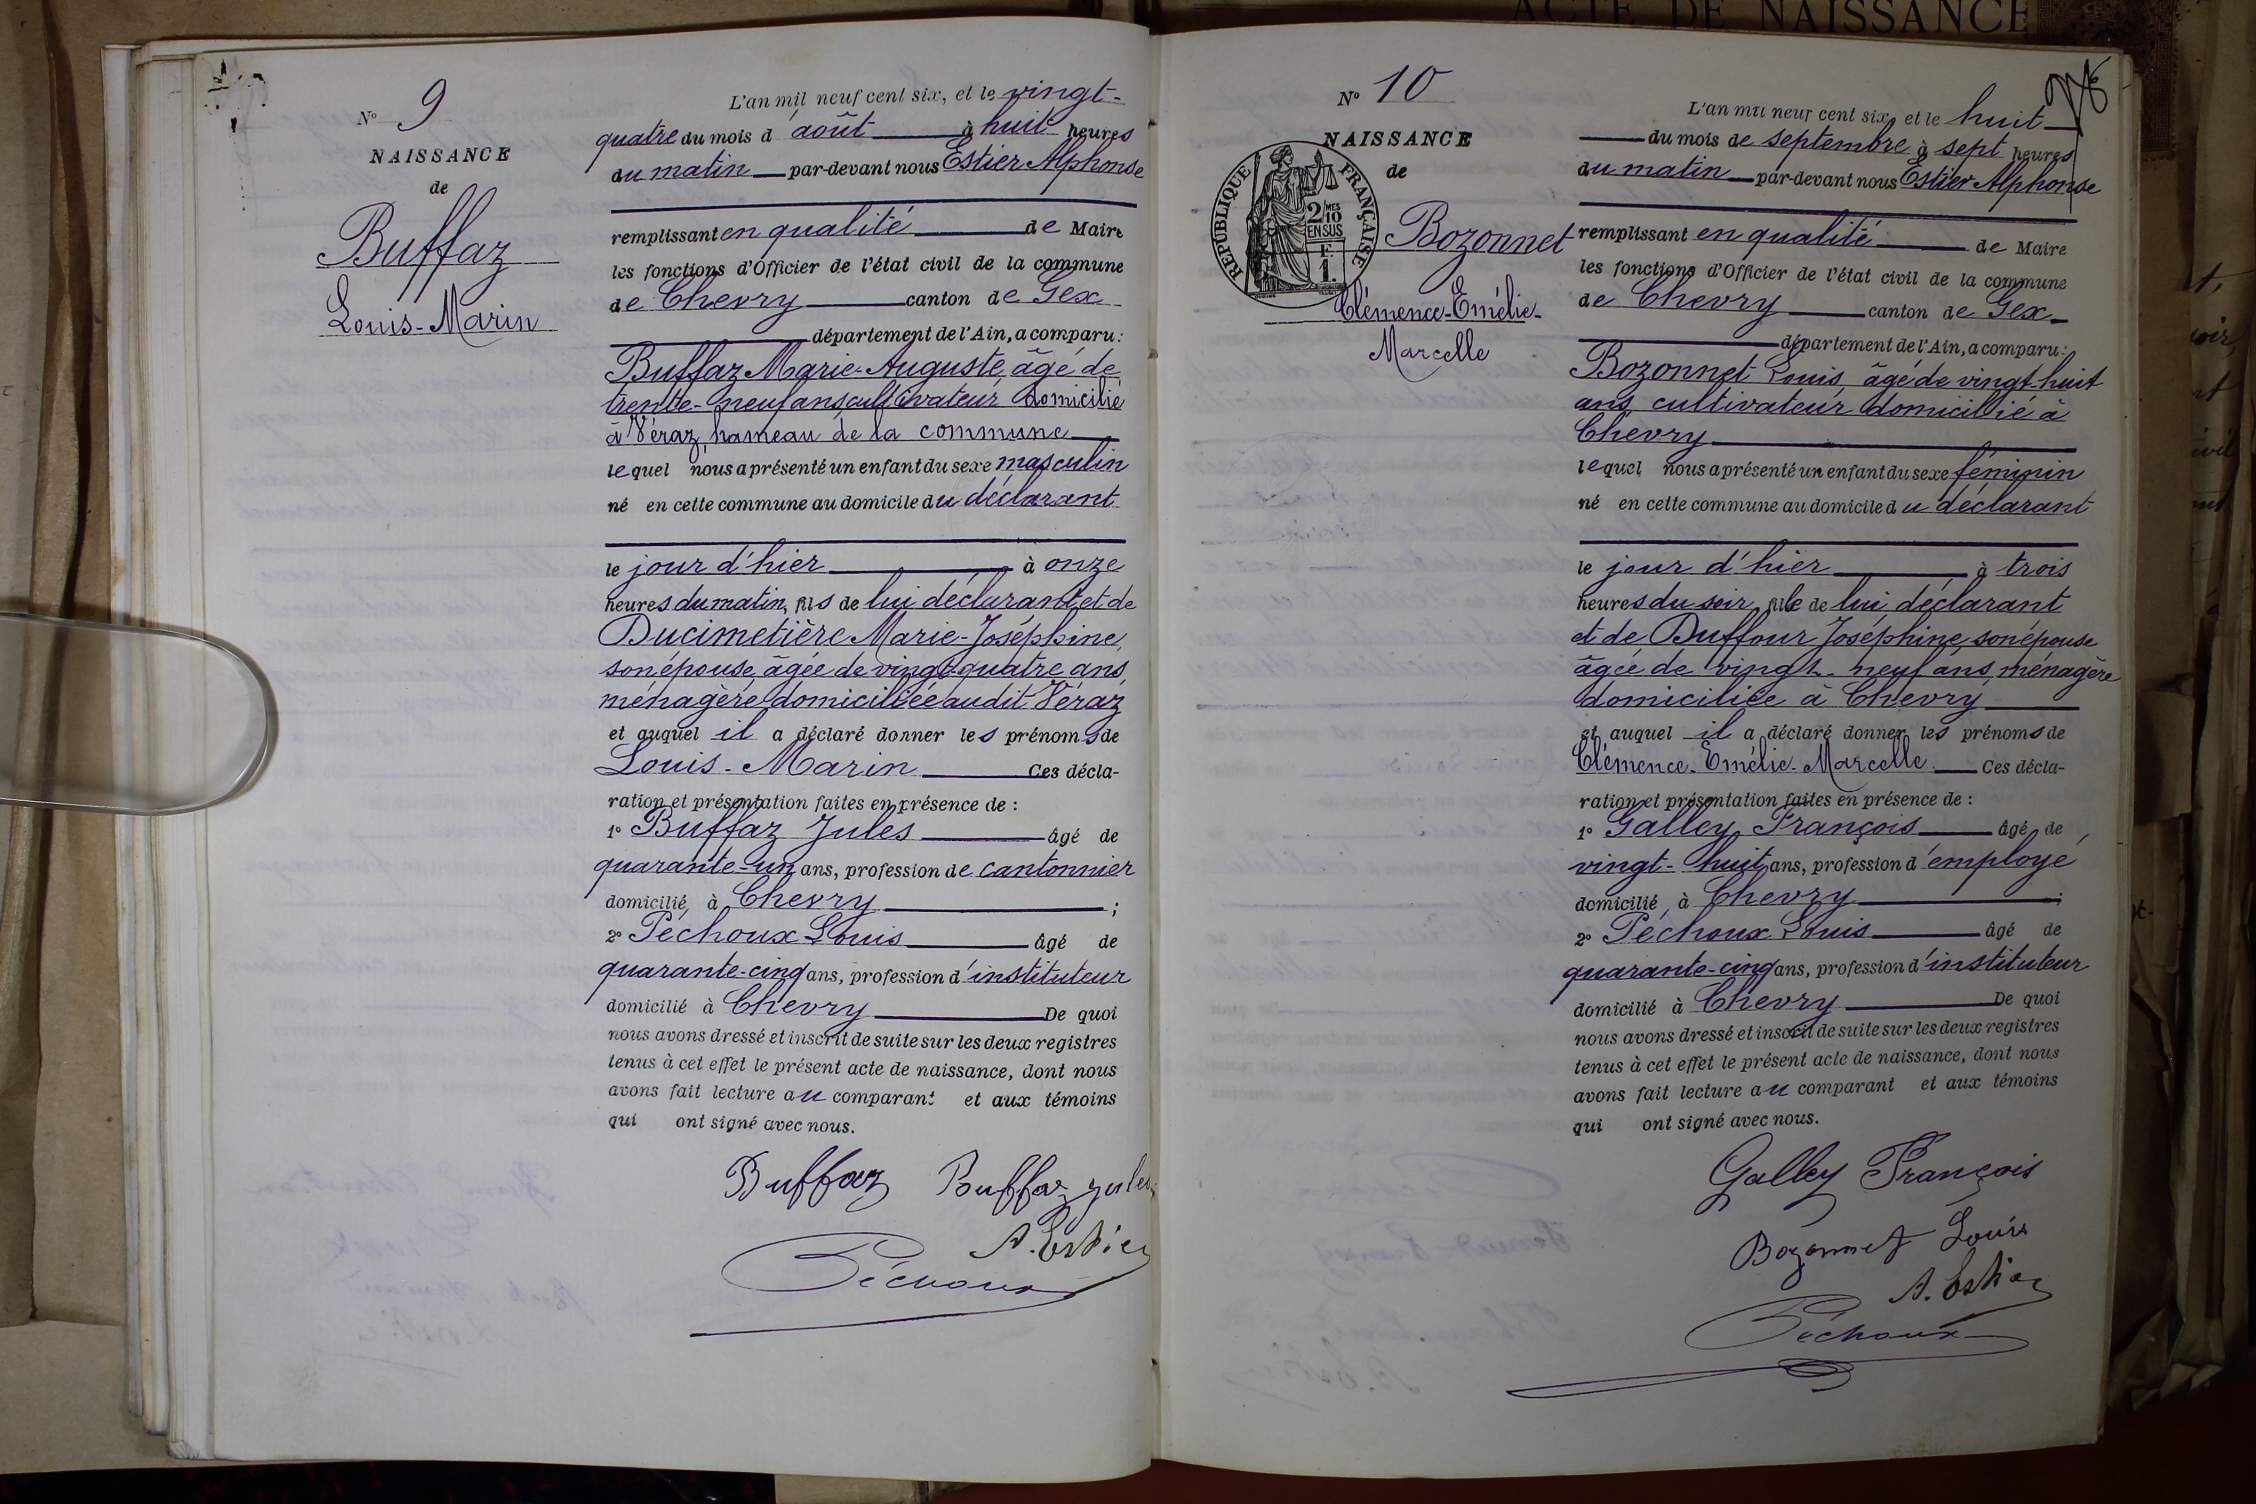 ACTE DE NAISSANCE
N° 9
NAISSANCE
de
Buffaz
Louis-Marin
L'an mil neuf cent six, et le vingt-
quatre du mois d'août à huit heures
du matin par-devant nous Estier Alphonse
remplissant en qualité de Maire
les fonctions d'Officier de l'état civil de la commune
de Chevry canton de Gex
département de l'Ain, a comparu:
Buffaz Marie-Auguste, âgé de
trente-neuf ans, cultivateur domicilié
à Véraz, hameau de la commune
lequel nous a présenté un enfant du sexe masculin
né en cette commune au domicile du déclarant
le jour d'hier à onze
heures du matin, fils de lui déclarant et de
Ducimetière Marie-Joséphine,
son épouse, âgée de vingt-quatre ans,
ménagère domiciliée audit Véraz
et auquel il a déclaré donner les prénoms de
Louis-Marin Ces décla-
ration et présentation faites en présence de :
1° Buffaz Jules âgé de
quarante-un ans, profession de cantonnier
domicilié à Chevry ;
2° Péchoux Louis âgé de
quarante-cinq ans, profession d'instituteur
domicilié à Chevry De quoi
nous avons dressé et inscrit de suite sur les deux registres
tenus à cet effet le présent acte de naissance, dont nous
avons fait lecture au comparant et aux témoins
qui ont signé avec nous.
Buffaz Buffaz Jules
A. Estier
Péchoux
N° 10
NAISSANCE
de
RÉPUBLIQUE FRANÇAISE
2 MES
10
EN SUS
F
1.
Bozonnet
Clémence-Emélie-
Marcelle
L'an mil neuf cent six, et le huit
du mois de septembre à sept heures
du matin par-devant nous Estier Alphonse
remplissant en qualité de Maire
les fonctions d'Officier de l'état civil de la commune
de Chevry canton de Gex
département de l'Ain, a comparu:
Bozonnet Louis, âgé de vingt-huit
ans, cultivateur domicilié à
Chevry
lequel nous a présenté un enfant du sexe féminin
né en cette commune au domicile du déclarant
le jour d'hier à trois
heures du soir, fille de lui déclarant
et de Duffour Joséphine, son épouse
âgée de vingt-neuf ans, ménagère
domiciliée à Chevry
et auquel il a déclaré donner les prénoms de
Clémence-Emélie-Marcelle. Ces décla-
ration et présentation faites en présence de :
1° Galley François âgé de
vingt-huit ans, profession d'employé
domicilié à Chevry ;
2° Péchoux Louis âgé de
quarante-cinq ans, profession d'instituteur
domicilié à Chevry De quoi
nous avons dressé et inscrit de suite sur les deux registres
tenus à cet effet le présent acte de naissance, dont nous
avons fait lecture au comparant et aux témoins
qui ont signé avec nous.
Galley François
Bozonnet Louis
A. Estier
Péchoux